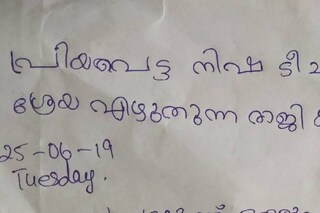 പ്രിയപ്പെട്ട നിഷ ടീച
ശ്രേയ എഴുതുന്ന രാജി
25-06-19
Tuesday.